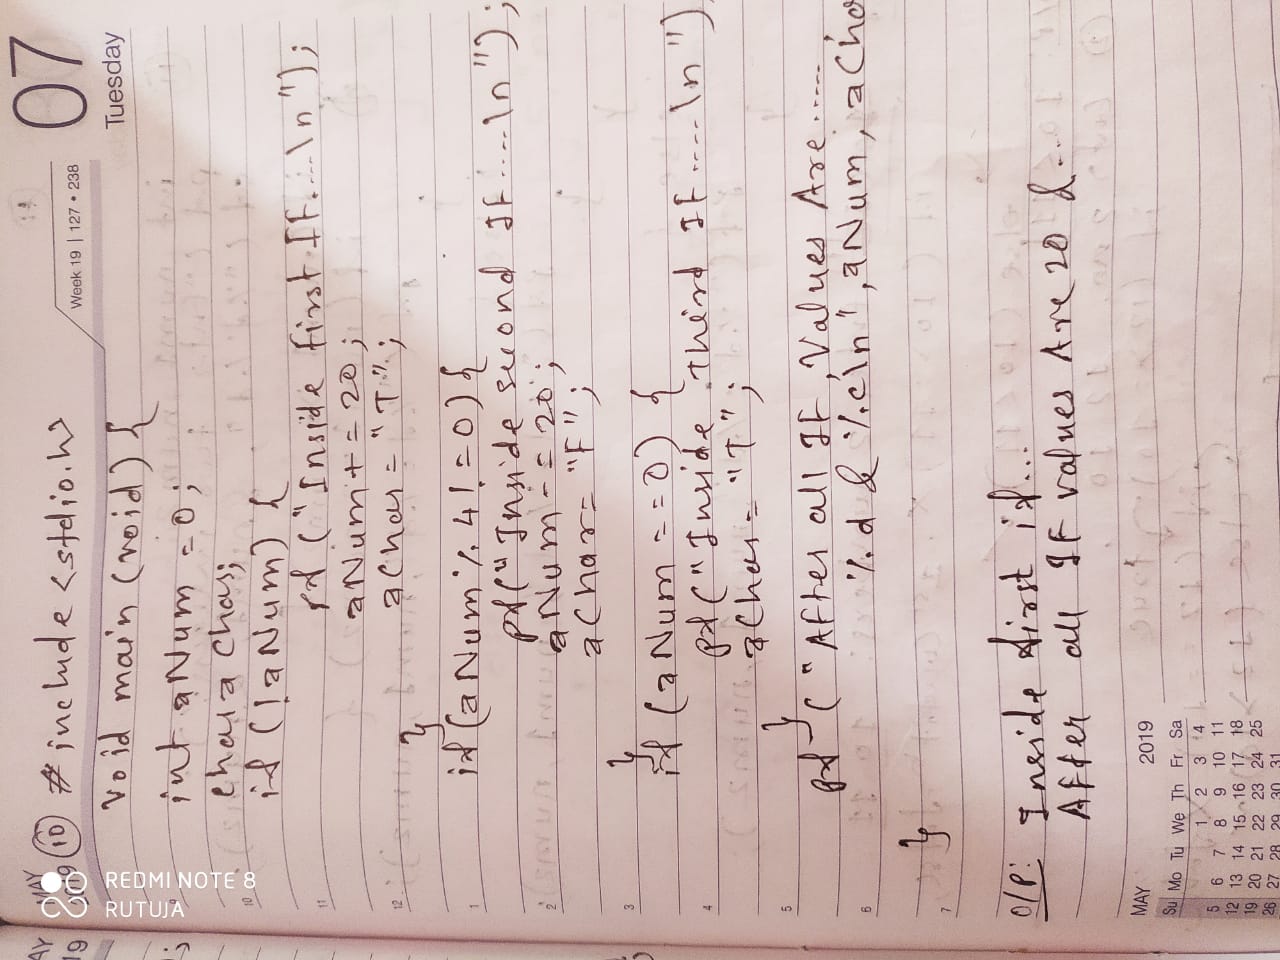 MAY
2019
10
# include <stdio.h>
Week 19 | 127 • 238
07
Tuesday
void main (void) {
int aNum = 0;
char aChar;
if (!aNum) {
pf ("Inside first If....\n");
aNum += 20;
aChar = "T";
}
if (aNum % 4 != 0) {
pf ("Inside second If.....\n");
aNum -= 20;
aChar = "F";
}
if (aNum == 0) {
pf ("Inside third If.....\n")
aChar = "T";
}
pf ("After all If, Values Are.....
%d & %c\n", aNum, aCha
}
O/P: Inside first if...
After all If values Are 20 & ...
9
10
11
12
1
2
3
4
5
6
7
MAY 2019
Su Mo Tu We Th Fr Sa
1 2 3 4
5 6 7 8 9 10 11
12 13 14 15 16 17 18
19 20 21 22 23 24 25
26 27 28 29 30 31
AY
19
REDMI NOTE 8
RUTUJA